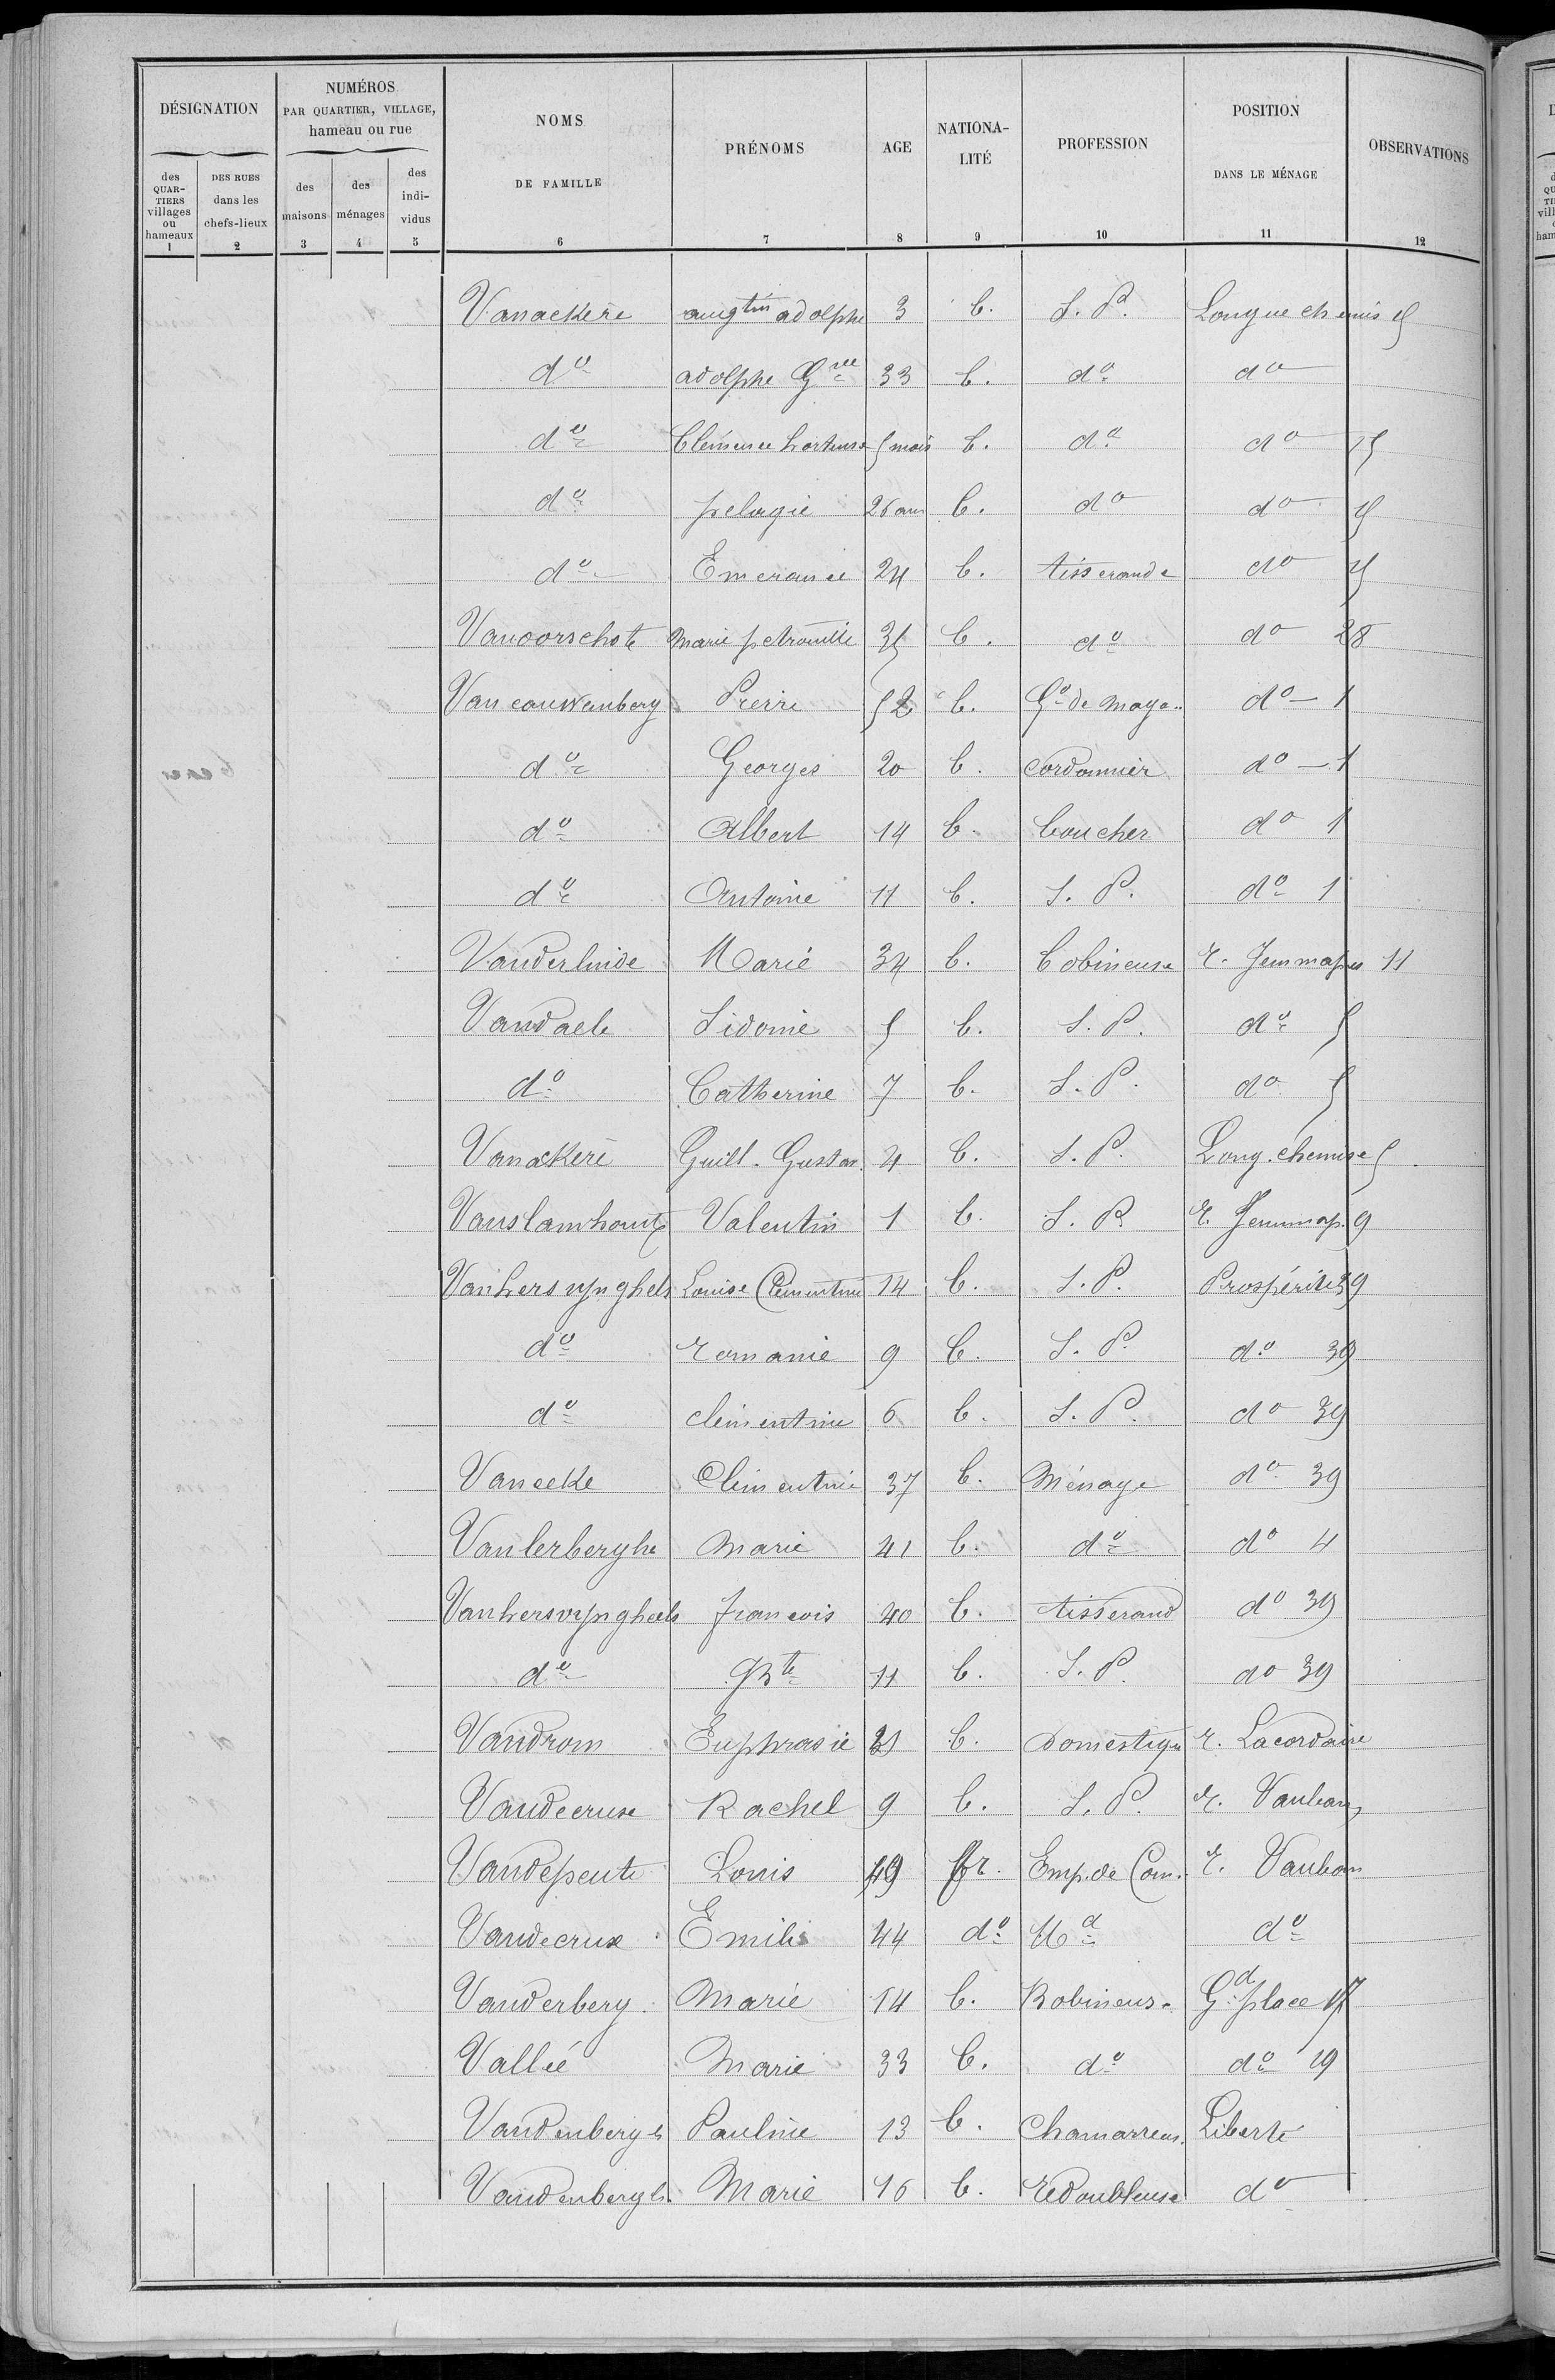 DÉSIGNATION
des QUARTIERS villages ou hameaux
1
DES RUES dans les chefs-lieux
2
NUMÉROS
PAR QUARTIER, VILLAGE,
hameau ou rue
des maisons
3
des ménages
4
des indi-vidus
5
NOMS
DE FAMILLE
6
PRÉNOMS
7
AGE
8
NATIONA-
LITÉ
9
PROFESSION
10
POSITION
DANS LE MÉNAGE
11
OBSERVATIONS
12
Vanackère augtin adolphe 3 b. S. P. Longue chemis 5
do adolphe 33 b. do do
do Clémence hortense 5 mois b. do do 15
do pelagie 26 ans b. do do 15
do Emerance 24 b. tisserande do 15
Vanoorschote Marie petronille 35 b. do do 28
Van cauwenberg Pierre 52 b. Go de Maga. do 1
do Georges 20 b. Cordonnier do 1
do Albert 14 b. boucher do 1
do Antoine 11 b. S. P. do 1
Vanderlinde Marie 34 b. bobineuse r. Jemmapes 11
Vandaele Sidonie 5 b. S. P. do 5
do Catherine 7 b. S. P. do 5
Vanackère Guill. Gustav. 4 b. S. P. Long. chemise 5
Vanslamhoutz Valentin 1 b. S. P. r. Jemmap. 9
Vanherswynghels Louise Clementine 14 b. S. P. Prospérité 39
do romanie 9 b. S. P. do 39
do clémentine 6 b. S. P. do 39
Vaneeke Clémentine 37 b. Ménage do 39
Vanlerberghe Marie 41 b. do do 4
Vanherswynghels francois 40 b. tisserand do 39
do Bte 11 b. S. P. do 39
Vandrom Euphrasie 21 b. Domestique r. Lacordaire
Vandecruse Rachel 9 b. S. P. r. Vauban
Vandepeute Louis 49 fr. Emp. de Com. r. Vauban
Vandecruse Emilie 44 do Md do
Vanderberg. Marie 14 b. Bobineuse Gd place 17
Vallée Marie 33 b. do do 19
Vandenbergh Pauline 13 b. Chamarreus. Liberté
Vandenbergh. Marie 16 b. Redoubleuse do